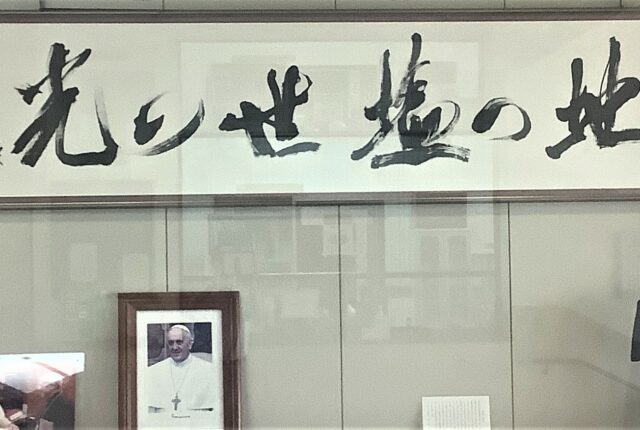 地の塩世の光